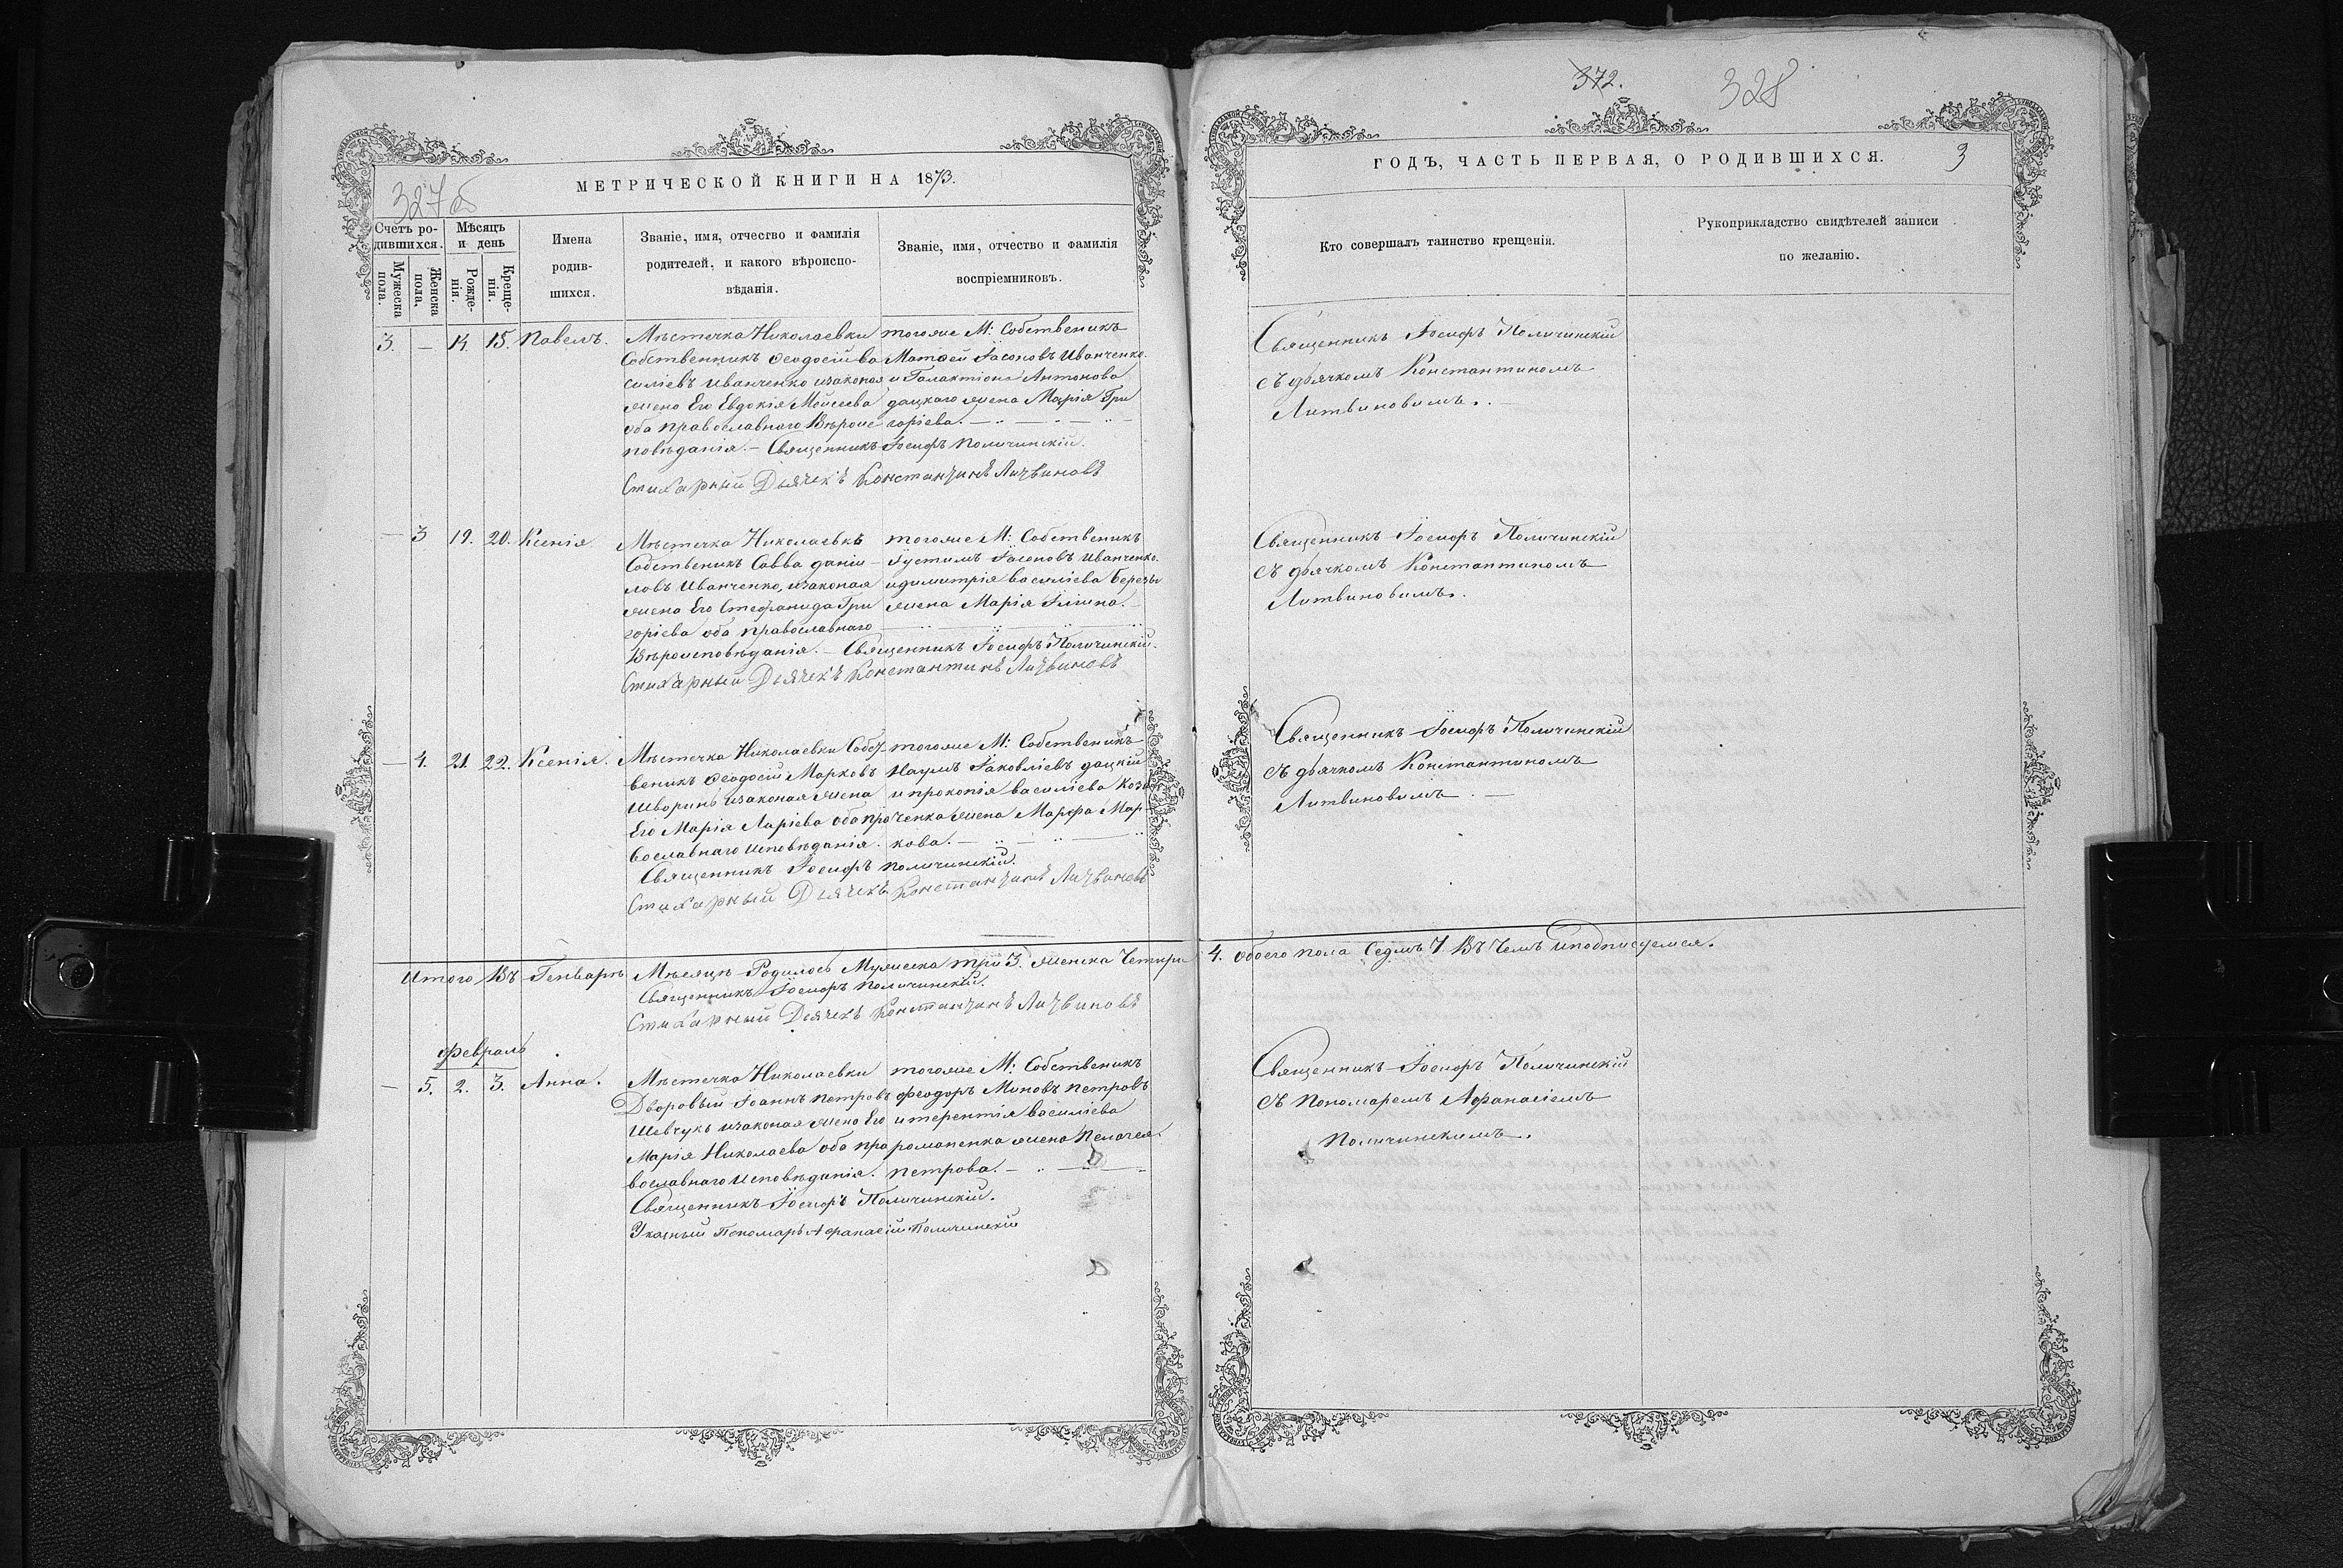 327об
МЕТРИЧЕСКОЙ КНИГИ НА 1873.
Счетъ ро-
дившихся.
Мужеска
пола.
Женска
пола.
Мѣсяцъ
и день
Рожде-
нія.
Креще-
нія.
Имена
родив-
шихся.
Званіе, имя, отчество и фамилія
родителей, и какого вѣроиспо-
вѣданія.
Званіе, имя, отчество и фамилія
воспріемниковъ.
3. — 14. 15. Павелъ.
Мѣстечка Николаевки
Собственникъ Ѳеодосій Ва
силіевъ Иванченко изаконая
жена Его Евдокія Мойсеева
оба православнаго Вѣроис
повѣданія. — Священникъ Іосифъ Поличинскій.
Стихарный Дьячекъ Константинъ Литвиновъ
тогоже М: Собственикъ
Матѳей Іасоновъ Иванченко.
и Галактіона Антонова
дацкаго жена Марія Гри
горіева. —
— 3 19. 20. Ксенія
Мѣстечка Николаевкѣ
Собственикъ Савва даніи-
ловъ Иванченко, изаконая
жена Его Стефанида Гри
горіева оба православнаго
Вѣроисповѣданія. — Священникъ Іосифъ Поличинскій.
Стихарный Дьячекъ Константинъ Литвиновъ
тогоже М: Собственикъ
Іустимъ Іасоновъ Иванченко.
идимитрія василіева Березы
жена Марія Іліина. —
— 4. 21. 22. Ксенія.
Мѣстечка Николаевки Собст
веникъ Ѳеодосій Марковъ
Шворинъ изаконая жена
Его Марія Ларіева оба пра
вославнаго исповѣданія.
Священникъ Іосифъ поличинскій.
Стихарный Дьячекъ Константинъ Литвиновъ
тогоже М: Собственикъ
Наумъ Іаковліевъ дацкій
и прокопія василіева Коза
ченка жена Марфа Мар-
кова. —
Итого Въ Генварѣ Мѣсяцѣ Родилось Мужеска три 3. женска Четыри 4. обоего пола Седмъ 7. Въ Чемъ иподписуемся.
Священникъ Іосифъ Поличинскій.
Стихарный Дьячекъ Константинъ Литвиновъ
Февраль
— 5. 2. 3. Анна.
Мѣстечка Николаевки
Дворовый Іоаннъ петровъ
Шевчукъ изаконая жена Его
Марія Николаева оба пра
вославнаго исповѣданія.
Священникъ Іосифъ Поличинскій.
Указный Пономарь Афанасій Поличинскій
тогоже М: Собственикъ
Феодоръ Миновъ петровъ
и терентія василіева
романенка жена Пелагея
петрова. —
372.
328
3
ГОДЪ, ЧАСТЬ ПЕРВАЯ, О РОДИВШИХСЯ.
Кто совершалъ таинство крещенія.
Рукоприкладство свидѣтелей записи
по желанію.
Священникъ Іосифъ Поличинскій
съ дьячкомъ Константиномъ
Литвиновимъ. —
Священникъ Іосифъ Поличинскій
съ дьячкомъ Константиномъ
Литвиновимъ.
Священникъ Іосифъ Поличинскій
съ дьячкомъ Константиномъ
Литвиновимъ. —
Священникъ Іосифъ Поличинскій
съ пономаремъ Афанасіемъ
Поличинскимъ.